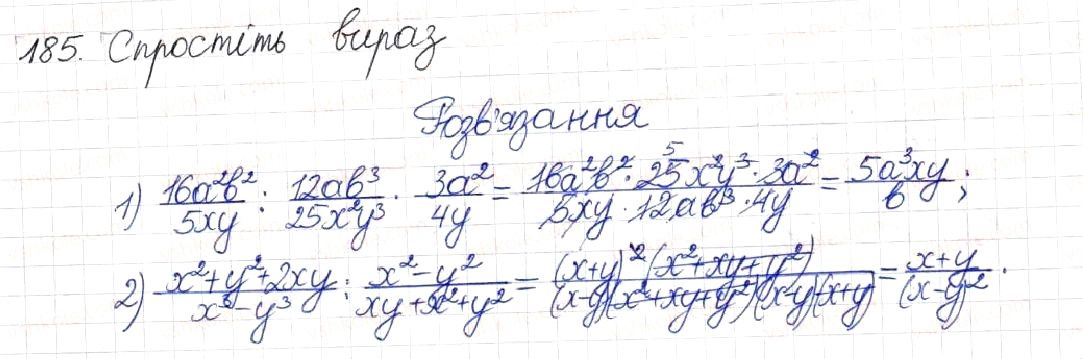 185. Спростіть вираз
Розв'язання
1) \frac{16a^2b^2}{5xy} : \frac{12ab^3}{25x^2y^3} \cdot \frac{3a^2}{4y} = \frac{16a^2b^2 \cdot 25x^2y^3 \cdot 3a^2}{5xy \cdot 12ab^3 \cdot 4y} = \frac{5a^3xy}{b};
2) \frac{x^2+y^2+2xy}{x^3-y^3} : \frac{x^2-y^2}{xy+x^2+y^2} = \frac{(x+y)^2(x^2+xy+y^2)}{(x-y)(x^2+xy+y^2)(x-y)(x+y)} = \frac{x+y}{(x-y)^2}.